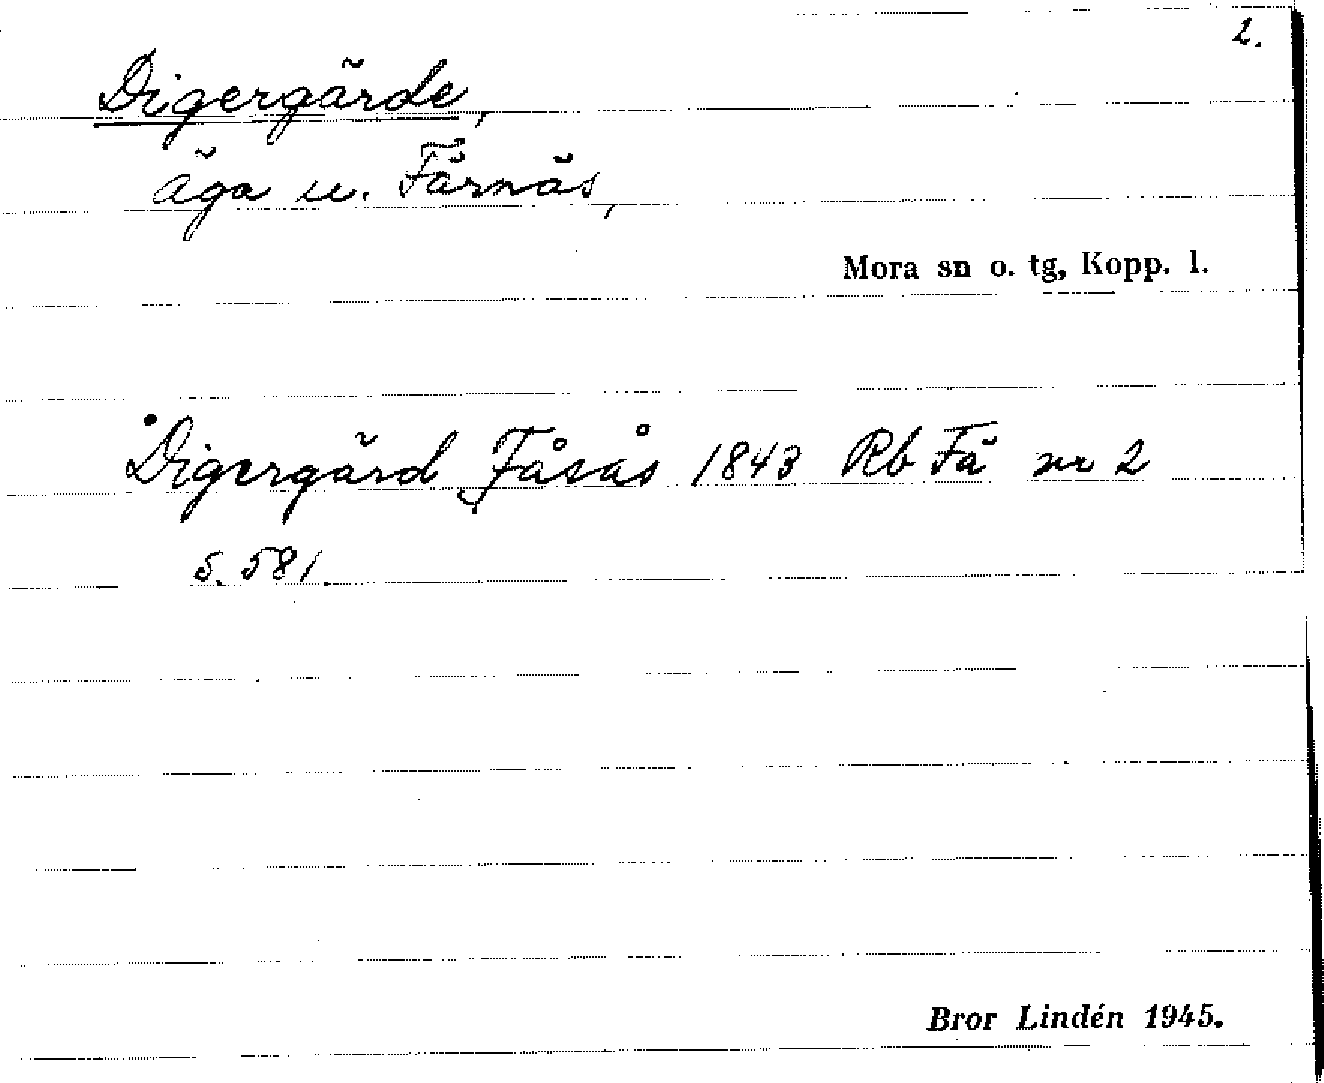 2.
Digergärde,
äga u. Färnäs,
Mora sn o. tg, Kopp. l.
Digergärd Fåsås 1843 Rb Fä nr 2
s. 581.
Bror Lindén 1945.